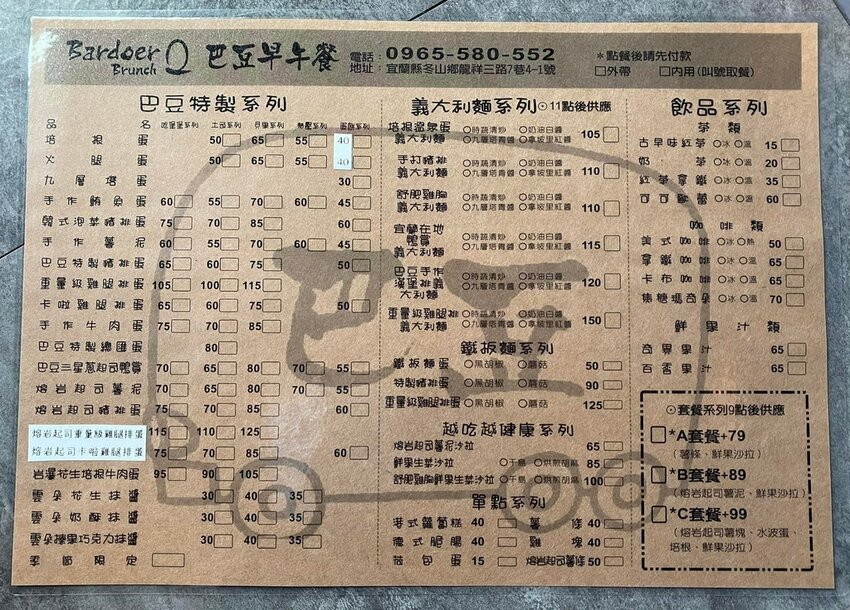 Bardoer Brunch 巴豆早午餐
電話：0965-580-552
地址：宜蘭縣冬山鄉龍祥三路7巷4-1號
*點餐後請先付款
□外帶 □內用(叫號取餐)
巴豆特製系列
品名 吐司系列 貝果系列 蛋餅系列
培根蛋 50 65 55 40
火腿蛋 50 65 55 40
九層塔蛋 30
手作鮪魚蛋 60 55 70 60 45
韓式泡菜豬排蛋 75 70 85 60
手作薯泥 60 55 70 60 45
巴豆特製豬排蛋 65 60 75 50
重量級雞腿排蛋 105 100 115
卡啦雞腿排蛋 65 60 75 50
手作牛肉蛋 75 70 85
巴豆特製總匯蛋 80
巴豆三星蔥起司鴨賞 70 65 80 70 55
熔岩起司薯泥 70 65 80 70 55
熔岩起司豬排蛋 75 70 85 60
熔岩起司重量級雞腿排蛋 115 110 125
熔岩起司卡啦雞腿排蛋 75 70 85 60
岩漿花生培根牛肉蛋 95 90 105
雲朵花生抹醬 30 40 35
雲朵奶酥抹醬 30 40 35
雲朵榛果巧克力抹醬 30 40 35
季節限定
義大利麵系列⊙11點後供應
培根溫泉蛋義大利麵 ○時蔬清炒 ○奶油白醬 ○九層塔青醬 ○拿坡里紅醬 105
手打豬排義大利麵 ○時蔬清炒 ○奶油白醬 ○九層塔青醬 ○拿坡里紅醬 110
舒肥雞胸義大利麵 ○時蔬清炒 ○奶油白醬 ○九層塔青醬 ○拿坡里紅醬 110
宜蘭在地鴨賞義大利麵 ○時蔬清炒 ○奶油白醬 ○九層塔青醬 ○拿坡里紅醬 115
巴豆手作漢堡排義大利麵 ○時蔬清炒 ○奶油白醬 ○九層塔青醬 ○拿坡里紅醬 120
重量級雞腿排義大利麵 ○時蔬清炒 ○奶油白醬 ○九層塔青醬 ○拿坡里紅醬 150
鐵板麵系列
鐵板麵蛋 ○黑胡椒 ○蘑菇 50
特製豬排蛋 ○黑胡椒 ○蘑菇 90
重量級雞腿排蛋 ○黑胡椒 ○蘑菇 125
越吃越健康系列
熔岩起司薯泥沙拉 65
鮮果生菜沙拉 ○千島 ○烘煎胡麻 85
舒肥雞胸鮮果生菜沙拉 ○千島 ○烘煎胡麻 100
單點系列
港式蘿蔔糕 40 薯條 40
德式肥腸 40 麥塊 40
荷包蛋 15 熔岩起司薯條 50
飲品系列
茶類
古早味紅茶 ○冰 ○溫 15
奶茶 ○冰 ○溫 20
紅茶拿鐵 ○冰 ○溫 35
可可歐蕾 ○冰 ○溫 60
咖啡類
美式咖啡 ○冰 ○熱 50
拿鐵咖啡 ○冰 ○溫 65
卡布咖啡 ○冰 ○溫 65
焦糖瑪奇朵 ○冰 ○溫 70
鮮果汁類
奇異果汁 65
百香果汁 65
⊙套餐系列9點後供應
□*A套餐+79
（薯條、鮮果沙拉）
□*B套餐+89
（熔岩起司薯泥、鮮果沙拉）
□*C套餐+99
（熔岩起司薯塊、水波蛋、
培根、鮮果沙拉）
巴豆